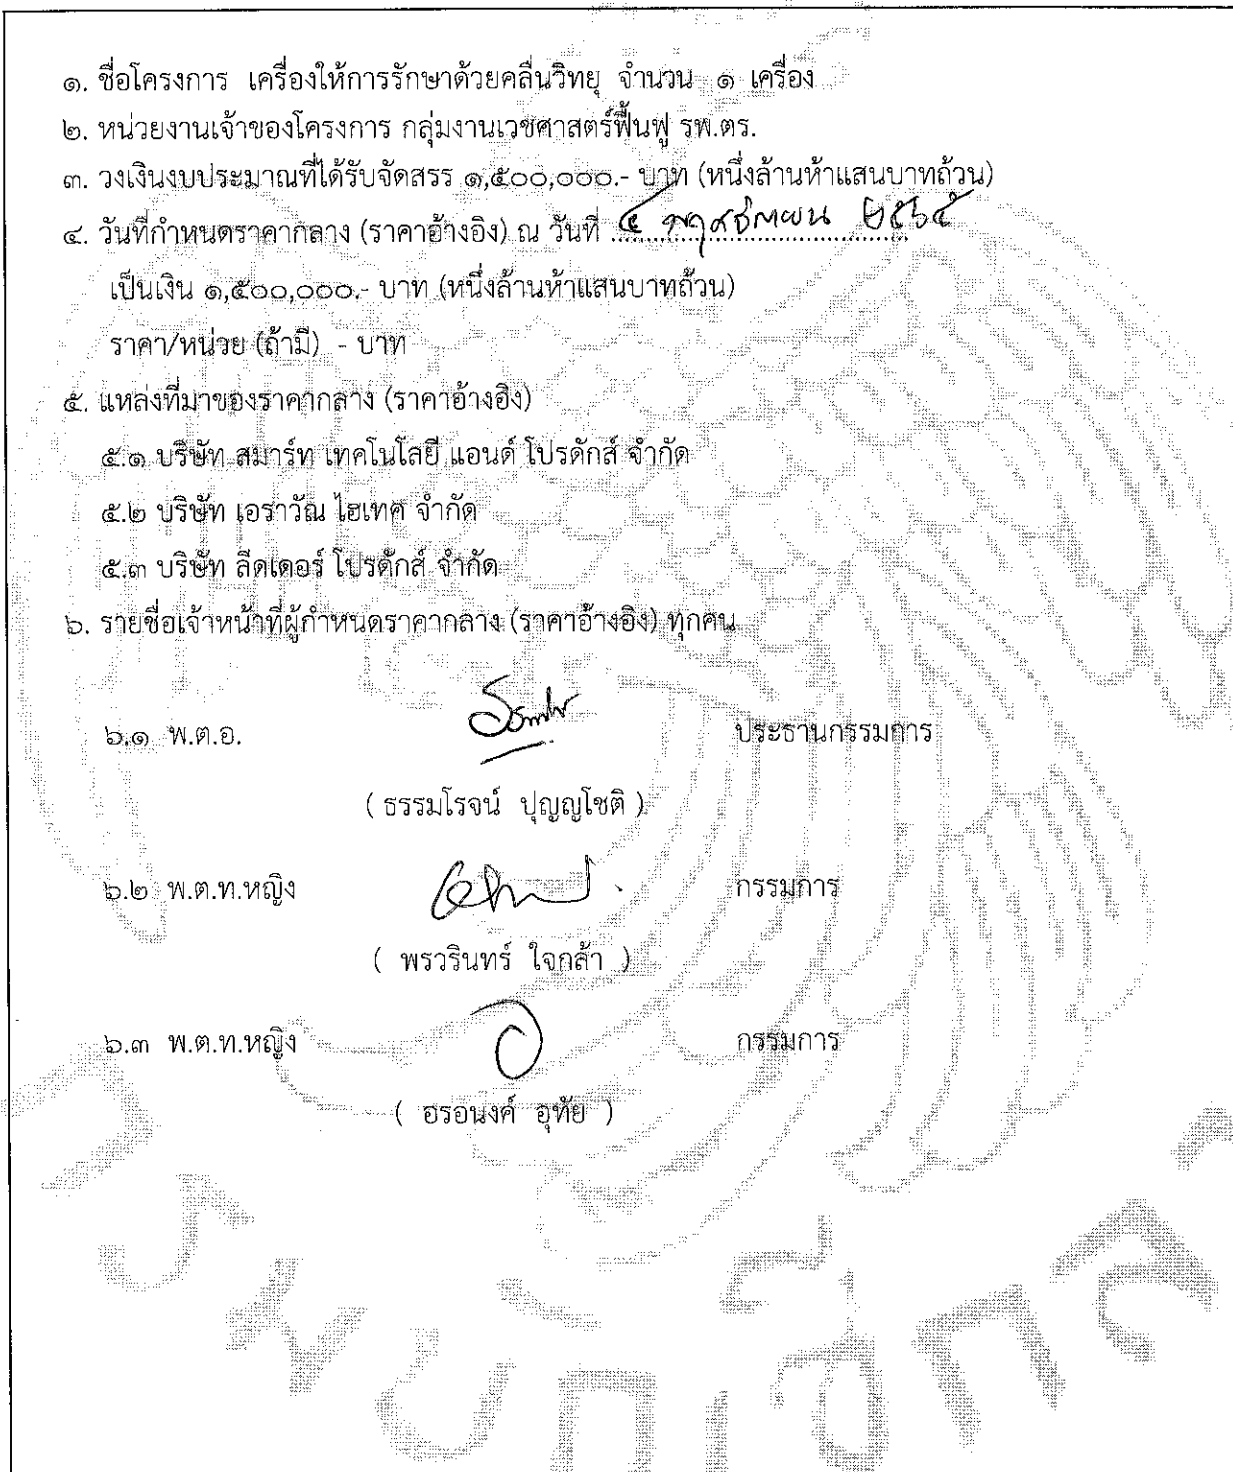 ๑. ชื่อโครงการ เครื่องให้การรักษาด้วยคลื่นวิทยุ จำนวน ๑ เครื่อง
๒. หน่วยงานเจ้าของโครงการ กลุ่มงานเวชศาสตร์ฟื้นฟู รพ.ตร.
๓. วงเงินงบประมาณที่ได้รับจัดสรร ๑,๕๐๐,๐๐๐.- บาท (หนึ่งล้านห้าแสนบาทถ้วน)
๔. วันที่กำหนดราคากลาง (ราคาอ้างอิง) ณ วันที่ ๔ พฤศจิกายน ๒๕๖๔
เป็นเงิน ๑,๕๐๐,๐๐๐.- บาท (หนึ่งล้านห้าแสนบาทถ้วน)
ราคา/หน่วย (ถ้ามี) - บาท
๕. แหล่งที่มาของราคากลาง (ราคาอ้างอิง)
๕.๑ บริษัท สมาร์ท เทคโนโลยี แอนด์ โปรดักส์ จำกัด
๕.๒ บริษัท เอราวัณ ไฮเทค จำกัด
๕.๓ บริษัท ลีดเดอร์ โปรดักส์ จำกัด
๖. รายชื่อเจ้าหน้าที่ผู้กำหนดราคากลาง (ราคาอ้างอิง) ทุกคน
๖.๑ พ.ต.อ. ประธานกรรมการ
( ธรรมโรจน์ ปุญญโชติ )
๖.๒ พ.ต.ท.หญิง กรรมการ
( พรวรินทร์ ใจกล้า )
๖.๓ พ.ต.ท.หญิง กรรมการ
( อรอนงค์ อุทัย )